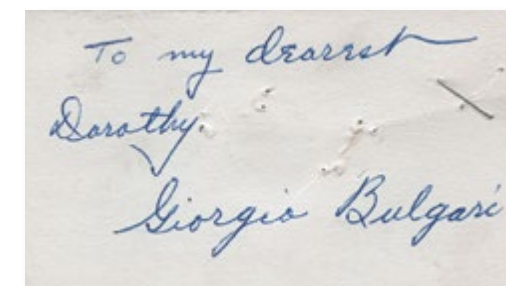 To my dearest
Dorothy
Giorgio Bulgari